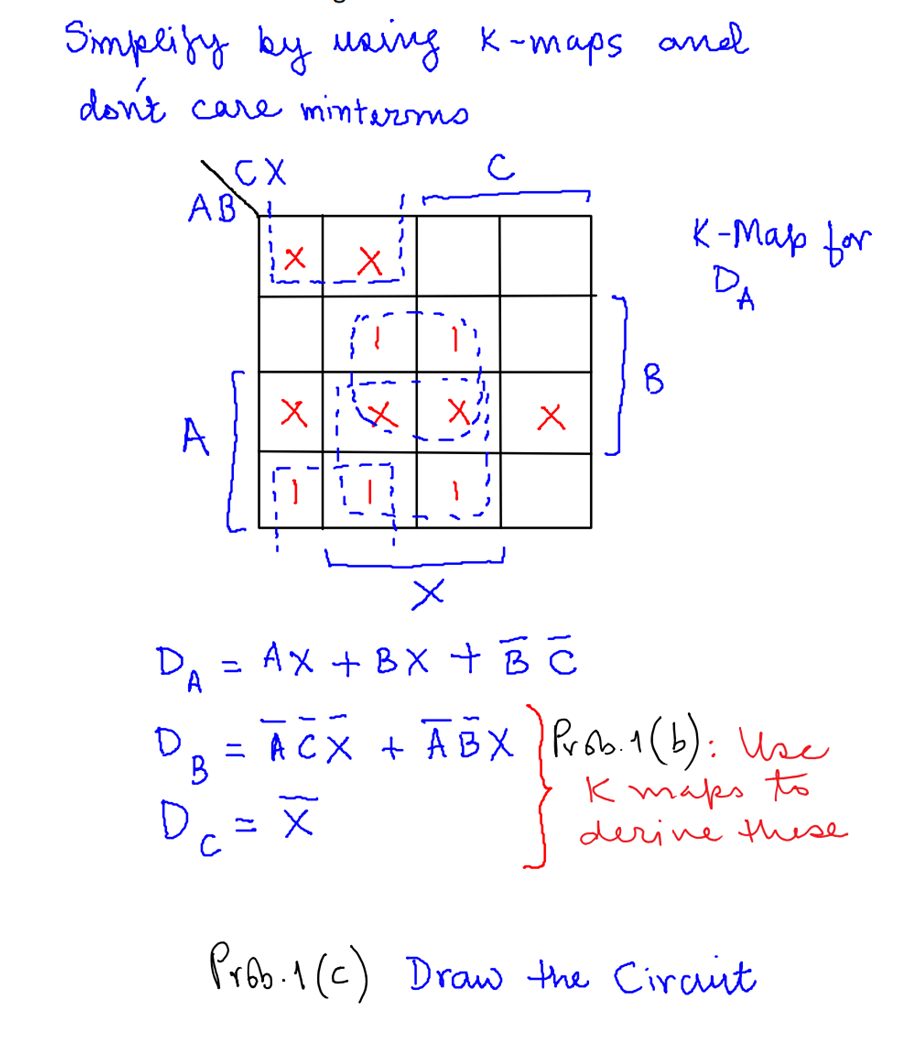 Simplify by using K-maps and
don't care minterms
CX
C
AB
K-Map for
D_A
X X
1 1
B
A
X X X X
1 1 1
X
D_A = AX + BX + B̅ C̅
D_B = A̅ C̅ X̅ + A̅ B̅ X
Prob.1(b): Use
K maps to
D_C = X̅
derive these
Prob.1(c) Draw the Circuit